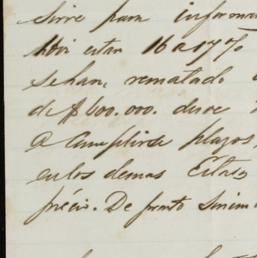 Sirve para informar
hoi estan 16 a 17%
se han rematado
de $600.000. dede
a cumplirse plazos,
en los demas Estac
précio. De pronto